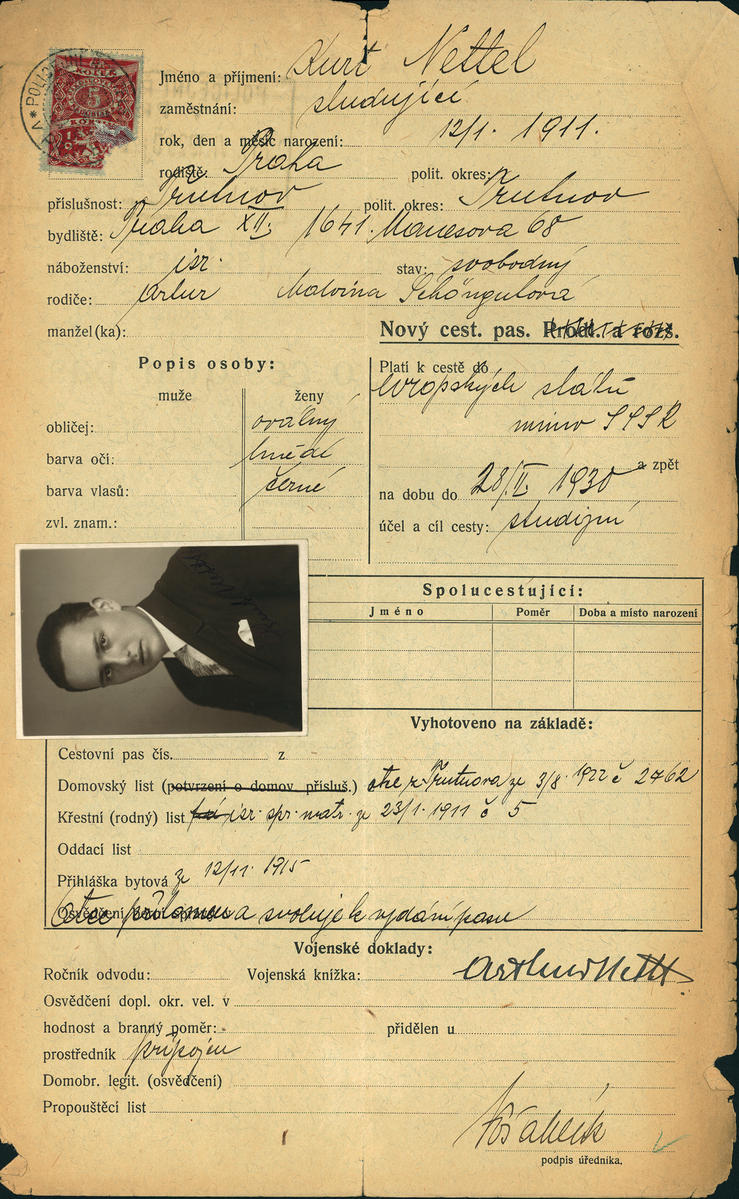 Jméno a příjmení: Kurt Nettel
zaměstnání: studující
rok, den a měsíc narození: 12/1. 1911.
rodiště: Praha polit. okres:
příslušnost: Trutnov polit. okres: Trutnov
bydliště: Praha XII. 1641. Manesova 68
náboženství: isr. stav: svobodný
rodiče: Artur Malvina Schöngutová
manžel(ka):
Nový cest. pas. Prodl. a rozš.
Popis osoby:
muže ženy
obličej: oválný
barva očí: hnědé
barva vlasů: černé
zvl. znam.:
Platí k cestě do
evropských států
mimo SSSR
a zpět
na dobu do 28/II. 1930
účel a cíl cesty: studijní
Spolucestující:
Jméno Poměr Doba a místo narození
Vyhotoveno na základě:
Cestovní pas čís. z
Domovský list (potvrzení o domov. přísluš.) otce z Trutnova ze 3/8. 1922 č 2762
Křestní (rodný) list isr. spr. matr. ze 23/1. 1911 č 5
Oddací list
Přihláška bytová ze 12/11. 1915
otec přítomen a svoluje k vydání pasu
Vojenské doklady:
Ročník odvodu: Vojenská knížka:
Osvědčení dopl. okr. vel. v
hodnost a branný poměr: přidělen u
prostředník připojen
Domobr. legit. (osvědčení)
Propouštěcí list
podpis úředníka.